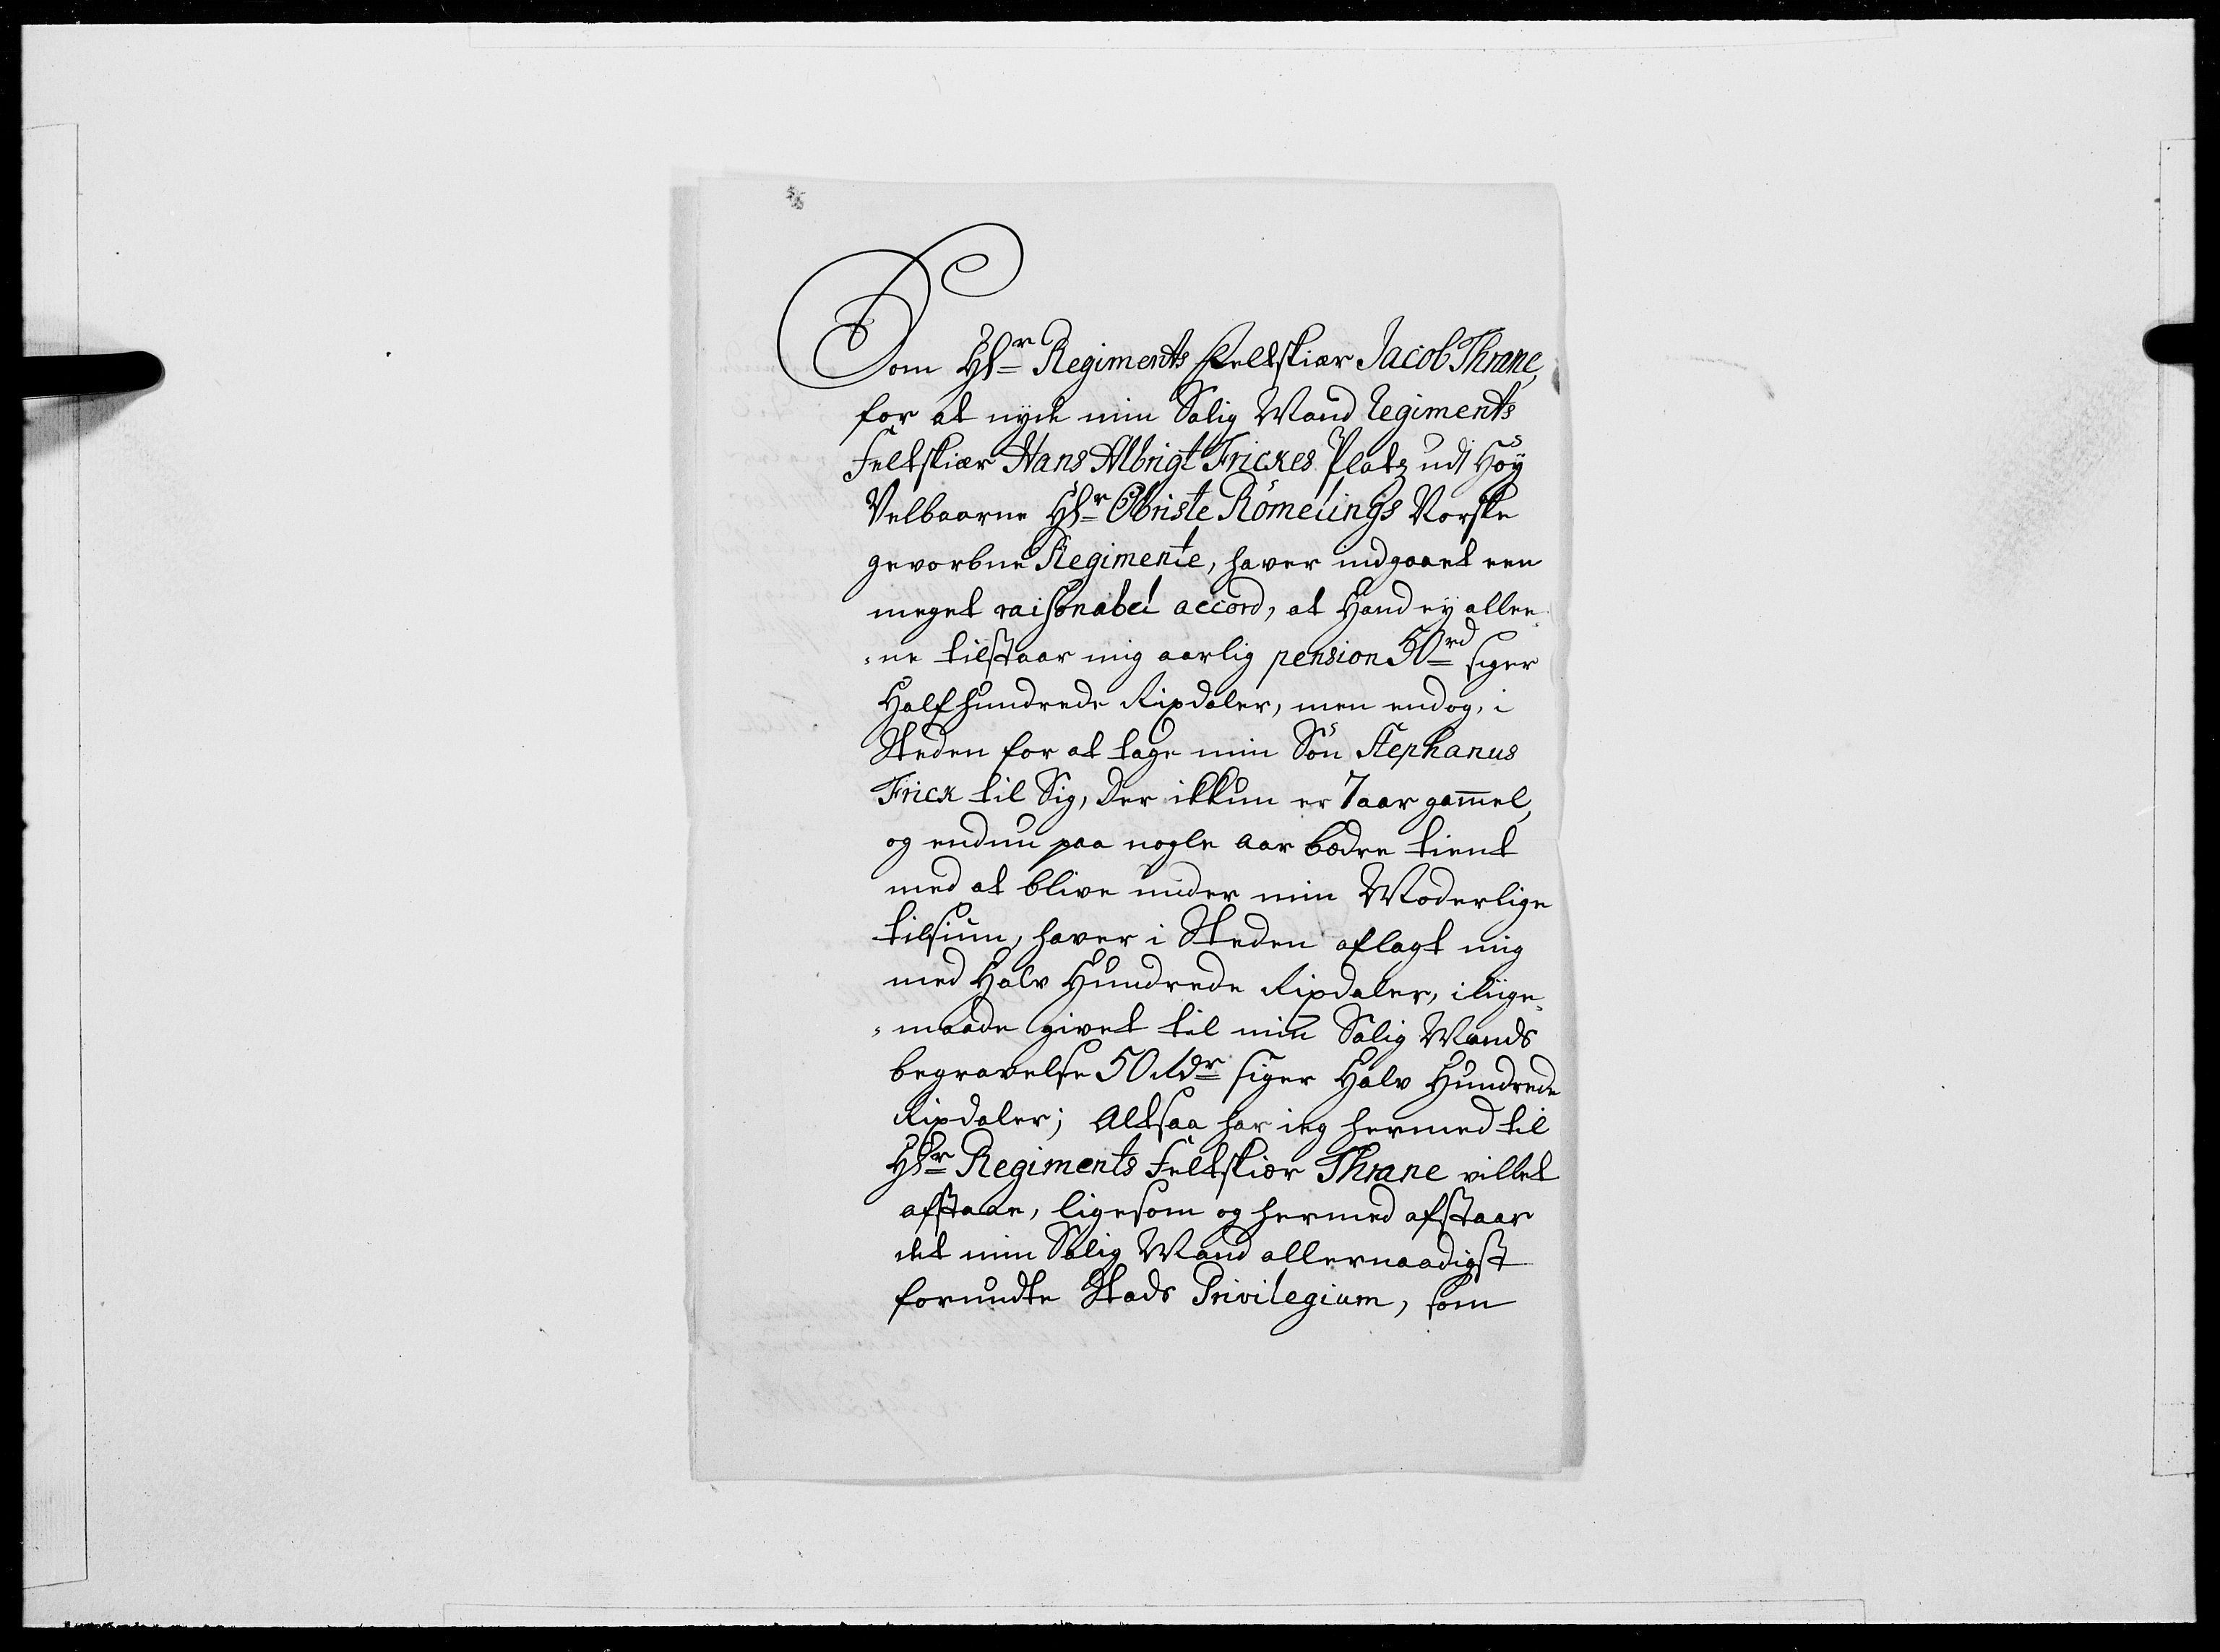 Som Hr Regiments Feltskiær Jacob Thrane,
for at nyde min Salig Mand Regiments
Feltskiær Hans Albrigt Frickes Platz udj Höÿ
Velbaarne Hr Obriste Römelings Norske
gevorbne Regimente, haver indgaaet een
meget raisonabel accord, at Hand eÿ allee-
-ne tilstaar mig aarlig pension 50 rd siger
Half hundrede Rixdaler, men endog, i
Steden for at tage min Sön Stephanus
Frick til Sig, der ikkun er 7 aar gammel,
og endnu paa nogle aar bædre tient
med at blive under min Moderlige
tilsiun, haver i Steden aflagt mig
med Halv Hundrede Rixdaler, i lige-
-maade givet til min Salig Mands
begravelse 50 Rdr siger Halv Hundrede
Rixdaler; Altsaa har ieg hermed til
Hr Regiments Feltskiær Thrane villet
afstaae, ligesom og hermed afstaar
det min Salig Mand allernaadigst
forundte Stads Privilegium, som